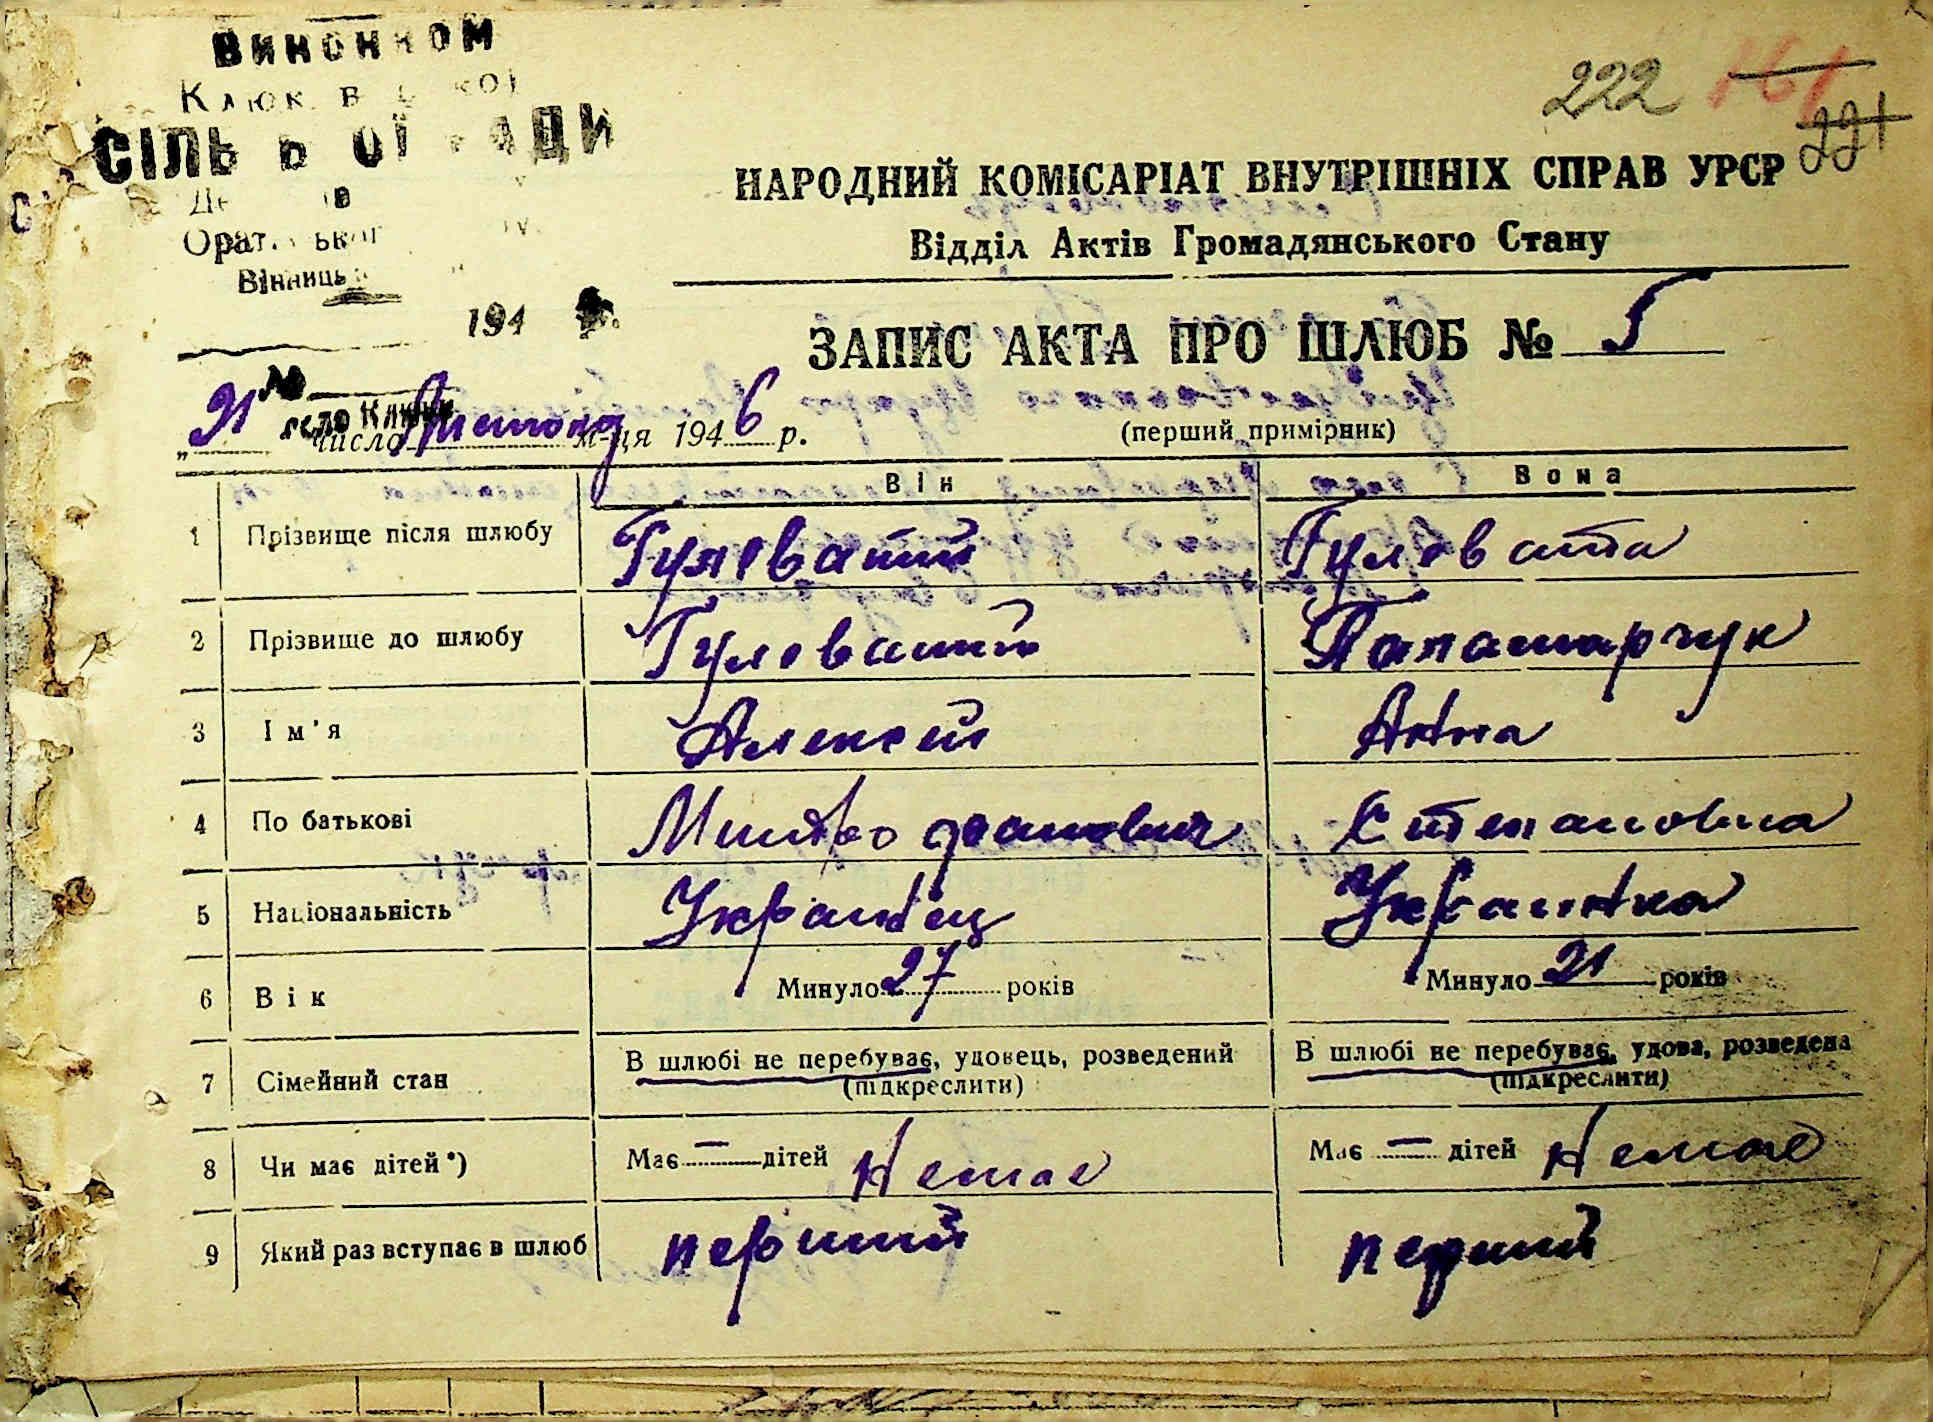 Виконком
СІЛЬ Ь ОЇ РАДИ
222 161 221
НАРОДНИЙ КОМІСАРІАТ ВНУТРІШНІХ СПРАВ УРСР
Відділ Актів Громадянського Стану
194
ЗАПИС АКТА ПРО ШЛЮБ № 5
№
село
„21 число м-ця 1946 р.
(перший примірник)
Він Вона
1 Прізвище після шлюбу Гулеватий Гулевата
2 Прізвище до шлюбу Гулеватий Паламарчук
3 Ім'я Алексей Анна
4 По батькові Степановна
5 Національність Украінец Украінка
6 Вік Минуло 27 років Минуло 21 років
7 Сімейний стан В шлюбі не перебуває, удовець, розведений (підкреслити) В шлюбі не перебуває, удова, розведена (підкреслити)
8 Чи має дітей*) Має — дітей Немає Має — дітей Немає
9 Який раз вступає в шлюб перший перший